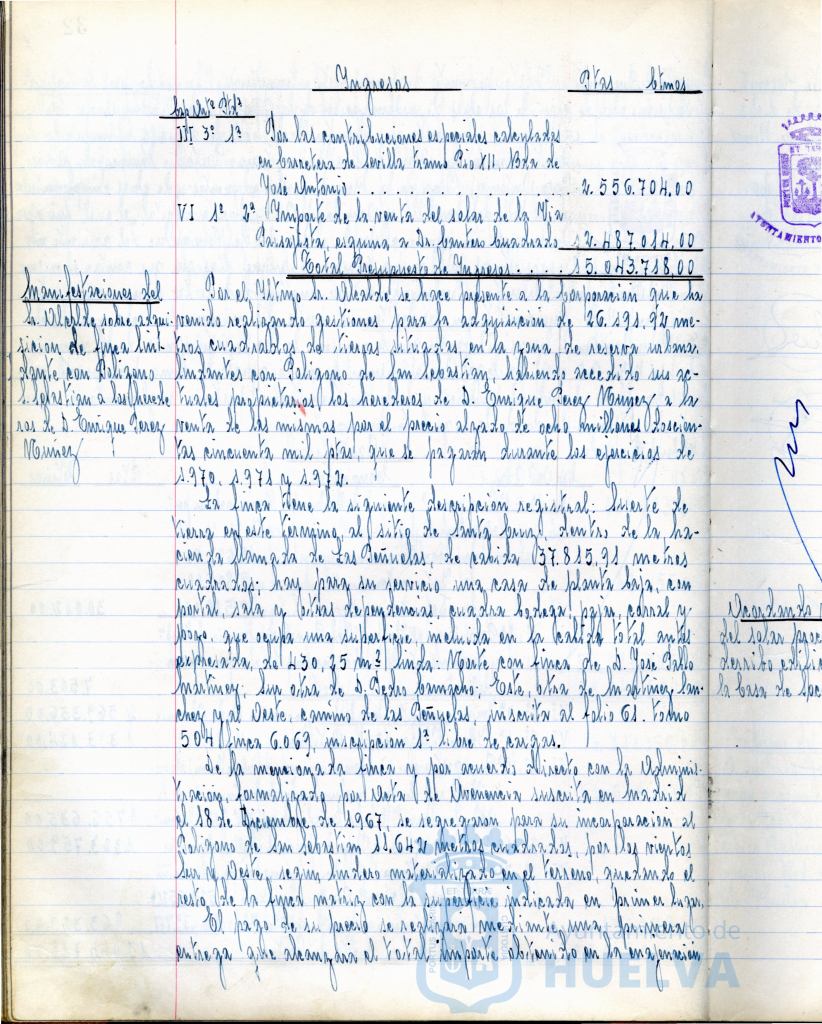 Ingresos Ptas Ctmos
Capºlº Artº
III 3º 1º Por las contribuciones especiales calculadas
en Carretera de Sevilla tramo Pio XII, Bda de
José Antonio . . . . . . . . . . . 2.556.704.00
VI 1º 2º Importe de la venta del solar de la Via
Paisajista, esquina a Dr. Cantero Cuadrado 12.487.014.00
Total Presupuesto de Ingresos . . . 15.043.718,00
Manifestaciones del
Sr. Alcalde sobre adqui-
sicion de finca lin-
dante con Poligono
S. Sebastian a los Herede
ros de D. Enrique Perez
Nuñez
Por el Iltmo Sr. Alcalde se hace presente a la Corporación que ha
venido realizando gestiones para la adquisición de 26.191.92 me-
tros cuadrados de tierras situadas, en la zona de reserva urbana,
lindantes con Poligono de San Sebastián, habiendo accedido sus ac-
tuales propietarios los herederos de D. Enrique Perez Nuñez a la
venta de las mismas por el precio alzado de ocho millones doscien-
tas cincuenta mil ptas, que se pagaran durante los ejercicios de
1.970, 1.971 y 1.972.
La finca tiene la siguiente descripción registral: Suerte de
tierra en este termino, al sitio de Santa Cruz, dentro de la ha-
cienda llamada de Las Peñuelas, de cabida 37.815,91 metros
cuadrados; hay para su servicio una casa de planta baja, con
portal, sala y otras dependencias, cuadra bodega, pajar, corral y
pozo, que ocupa una superficie incluida en la cabida total antes
expresada, de 430,25 m² linda: Norte con finca de D. José Pablo
Martinez; Sur otra de D. Pedro Camacho; Este, otra de Martinez San-
chez y al Oeste, camino de las Peñuelas, inscrita al folio 61. tomo
504 finca 6.069, inscripción 1ª, libre de cargas.
De la mencionada finca y por acuerdo directo con la Adminis-
tración, formalizado por Acta de Avenencia suscrita en Madrid
el 18 de Diciembre de 1.967, se segregaron para su incorporación al
Poligono de San Sebastián 11.642 metros cuadrados, por los vientos
Sur y Oeste, según lindero materializado en el terreno, quedando el
resto de la finca matriz con la superficie indicada en primer lugar.
El pago de su precio se realizara mediante una primera
entrega que alcanzará el total importe obtenido en la enajenacion
Acordando
del solar proce
derribo edific
la Casa de Soco
AYUNTAMIENTO
Ayuntamiento de
HUELVA